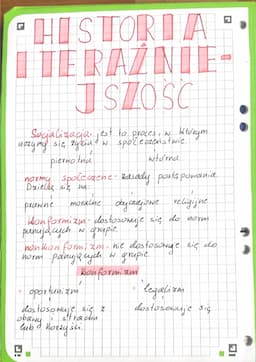 HISTORIA
I TERAŹNIE-
JSZOŚĆ
Socjalizacja- jest to proces, w którym
uczymy się żyć w społeczeństwie
pierwotna wtórna
normy społeczne- zasady postępowania
Dzielą się na:
prawne moralne obyczajowe religijne
konformizm- dostosowuje się do norm
panujących w grupie
nonkonformizm- nie dostosowuje się do
norm panujących w grupie.
konformizm
oportunizm legalizm
dostosowuje się z dostosowuje się
obawy i strachu
lub korzyści.